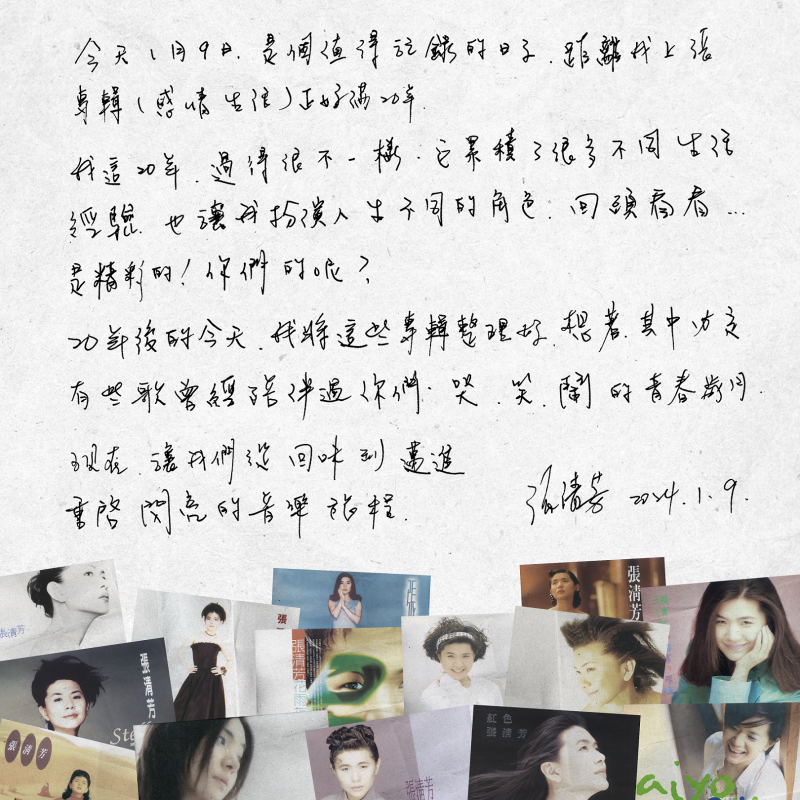 今天1月9日. 是個值得記錄的日子. 距離我上張
專輯(感情生活)正好滿20年.
我這20年, 過得很不一樣. 它累積了很多不同生活
經驗. 也讓我扮演人生不同的角色. 回頭看看...
是精彩的! 你們的呢?
20年後的今天, 我將這些專輯整理好. 想著其中應該
有些歌曾經陪伴過你們. 哭、笑、鬧的青春歲月.
現在, 讓我們從回味到邁進
重啓閃亮的音樂旅程.
張清芳 2024.1.9.
張清芳
張清芳
張清芳
張清芳
張清芳
紅色
張清芳
張清芳
張清芳
aiyo..